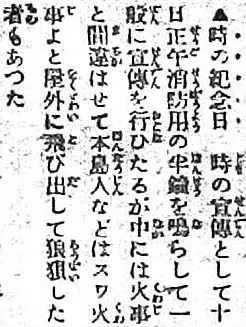 ▲時の紀念日　時の宣傳として十
日正午消防用の半鐘を鳴らして一
般に宣傳を行ひたるが中には火事
と間違はせて本島人などはスワ火
事よと屋外に飛び出して狼狽した
者もあつた